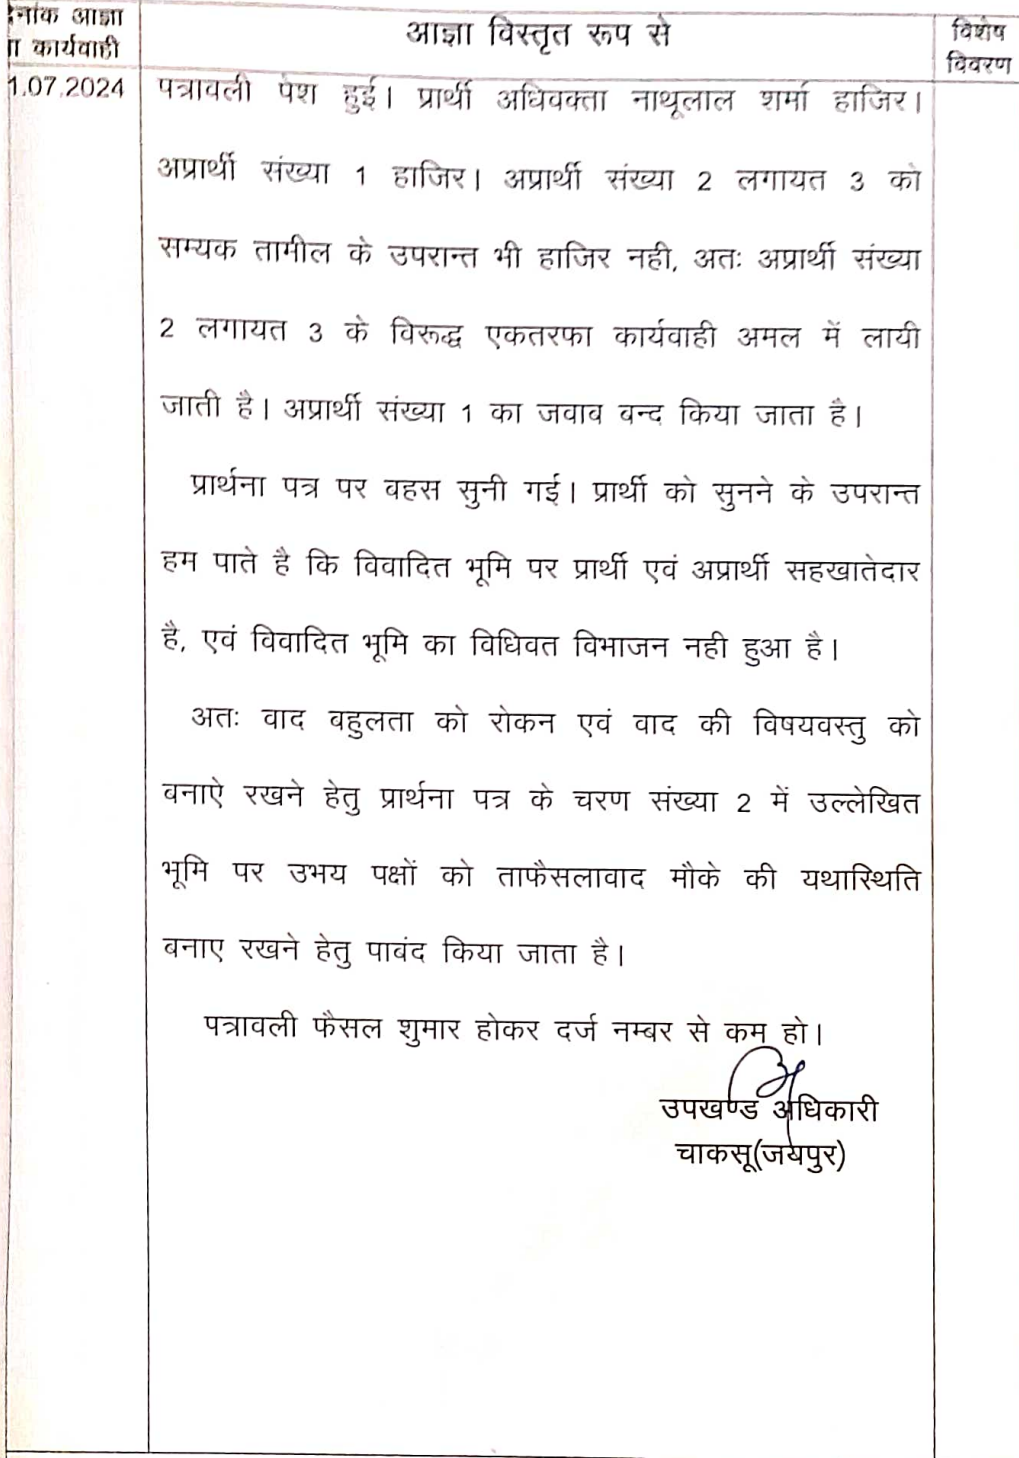 दिनांक आज्ञा
या कार्यवाही
आज्ञा विस्तृत रूप से
विशेष
विवरण
1.07.2024
पत्रावली पेश हुई। प्रार्थी अधिवक्ता नाथूलाल शर्मा हाजिर।
अप्रार्थी संख्या 1 हाजिर। अप्रार्थी संख्या 2 लगायत 3 को
सम्यक तामील के उपरान्त भी हाजिर नही, अतः अप्रार्थी संख्या
2 लगायत 3 के विरूद्ध एकतरफा कार्यवाही अमल में लायी
जाती है। अप्रार्थी संख्या 1 का जवाव वन्द किया जाता है।
प्रार्थना पत्र पर वहस सुनी गई। प्रार्थी को सुनने के उपरान्त
हम पाते है कि विवादित भूमि पर प्रार्थी एवं अप्रार्थी सहखातेदार
है, एवं विवादित भूमि का विधिवत विभाजन नही हुआ है।
अतः वाद वहुलता को रोकन एवं वाद की विषयवस्तु को
वनाऐ रखने हेतु प्रार्थना पत्र के चरण संख्या 2 में उल्लेखित
भूमि पर उभय पक्षों को ताफैसलावाद मौके की यथास्थिति
बनाए रखने हेतु पाबंद किया जाता है।
पत्रावली फैसल शुमार होकर दर्ज नम्बर से कम हो।
उपखण्ड अधिकारी
चाकसू(जयपुर)